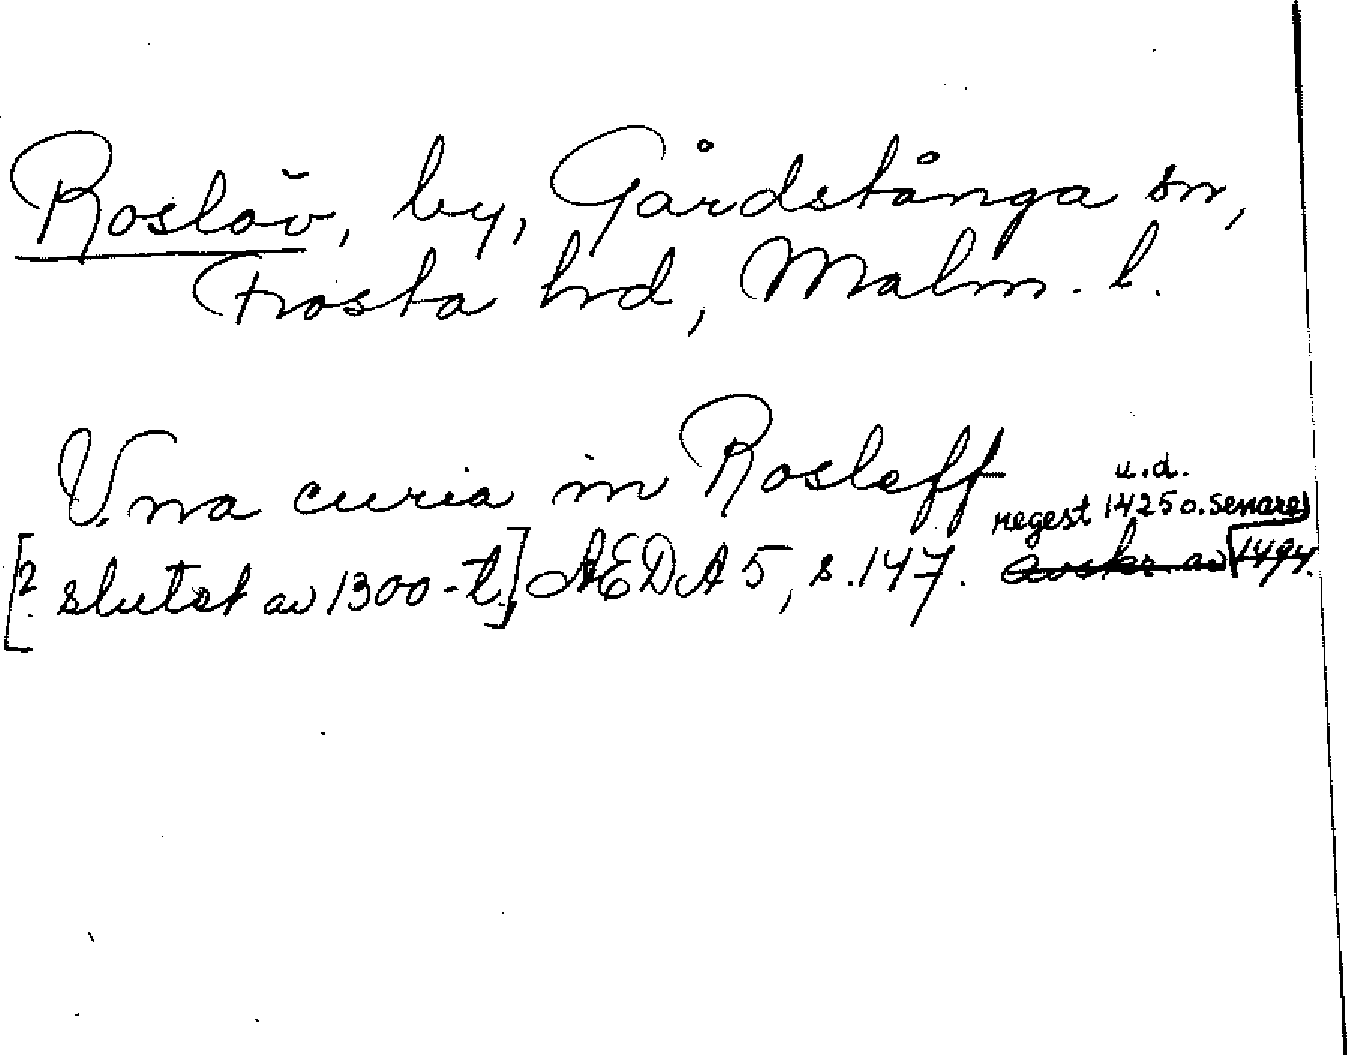 Roslöv, by, Gårdstånga sn,
Frosta hd, Malm. l.
Una curia in Rosleff
u.d.
regest 1425 o. senare
[? slutet av 1300-t.] AEDA 5, s. 147. avskr. av 1494.